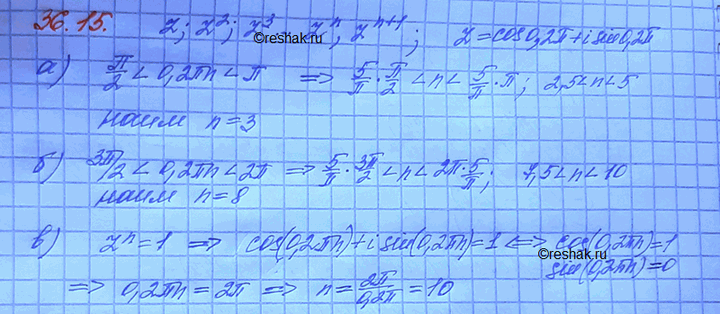 36.15. z; z²; z³ zⁿ, zⁿ⁺¹; z=cos0,2π+i sin0,2π
©reshak.ru
а) π/2 < 0,2πn < π ⟹ 5/π · π/2 < n < 5/π · π; 2,5<n<5
наим n=3
б) 3π/2 < 0,2πn < 2π ⟹ 5/π · 3π/2 < n < 2π · 5/π; 7,5<n<10
наим n=8
в) zⁿ=1 ⟹ cos(0,2πn)+i sin(0,2πn)=1 ⟺ cos(0,2πn)=1
©reshak.ru
sin(0,2πn)=0
⟹ 0,2πn=2π ⟹ n= 2π/0,2π =10